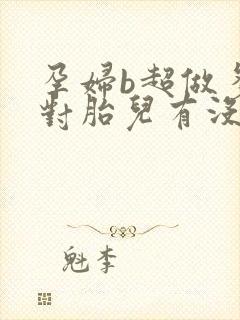 孕婦b超做
對胎兒有沒
魁李